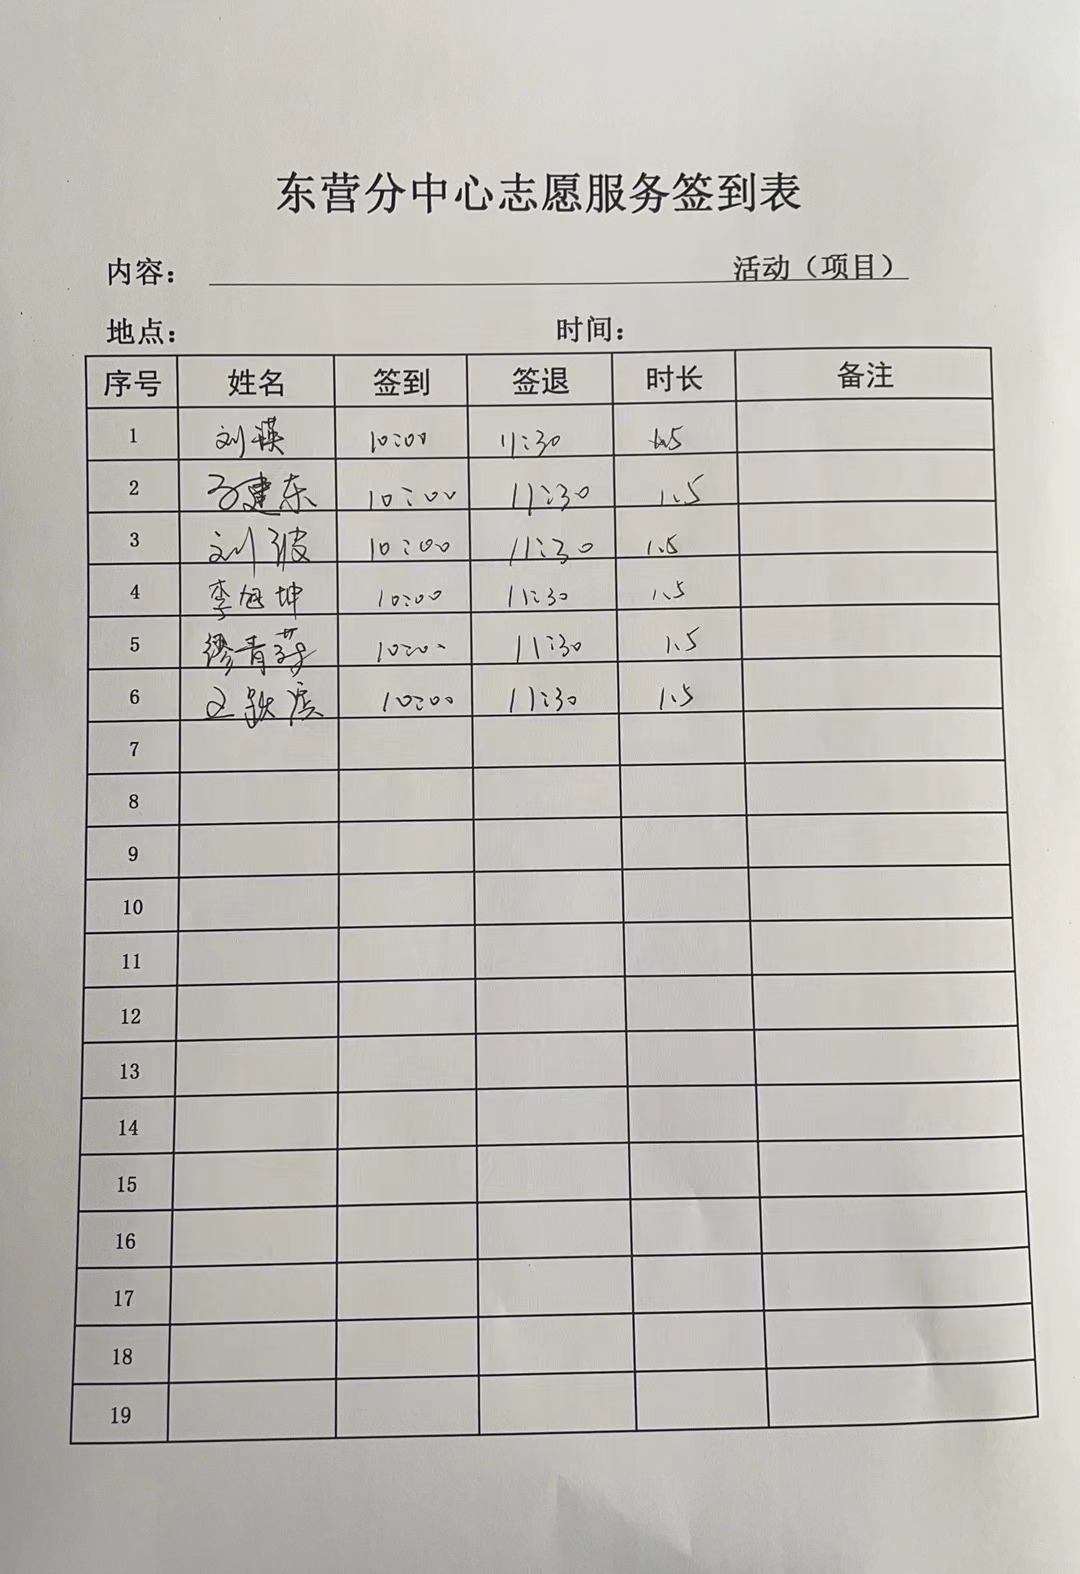 东营分中心志愿服务签到表
内容： 活动（项目）
地点： 时间：
序号 姓名 签到 签退 时长 备注
1 刘瑛 10:00 11:30 1.5
2 建东 10:00 11:30 1.5
3 刘波 10:00 11:30 1.5
4 李旭坤 10:00 11:30 1.5
5 缪青 10:00 11:30 1.5
6 10:00 11:30 1.5
7
8
9
10
11
12
13
14
15
16
17
18
19